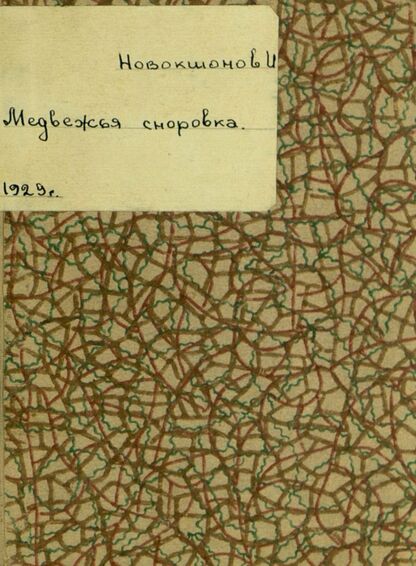 Новокшонов И
Медвежья сноровка.
1929г.